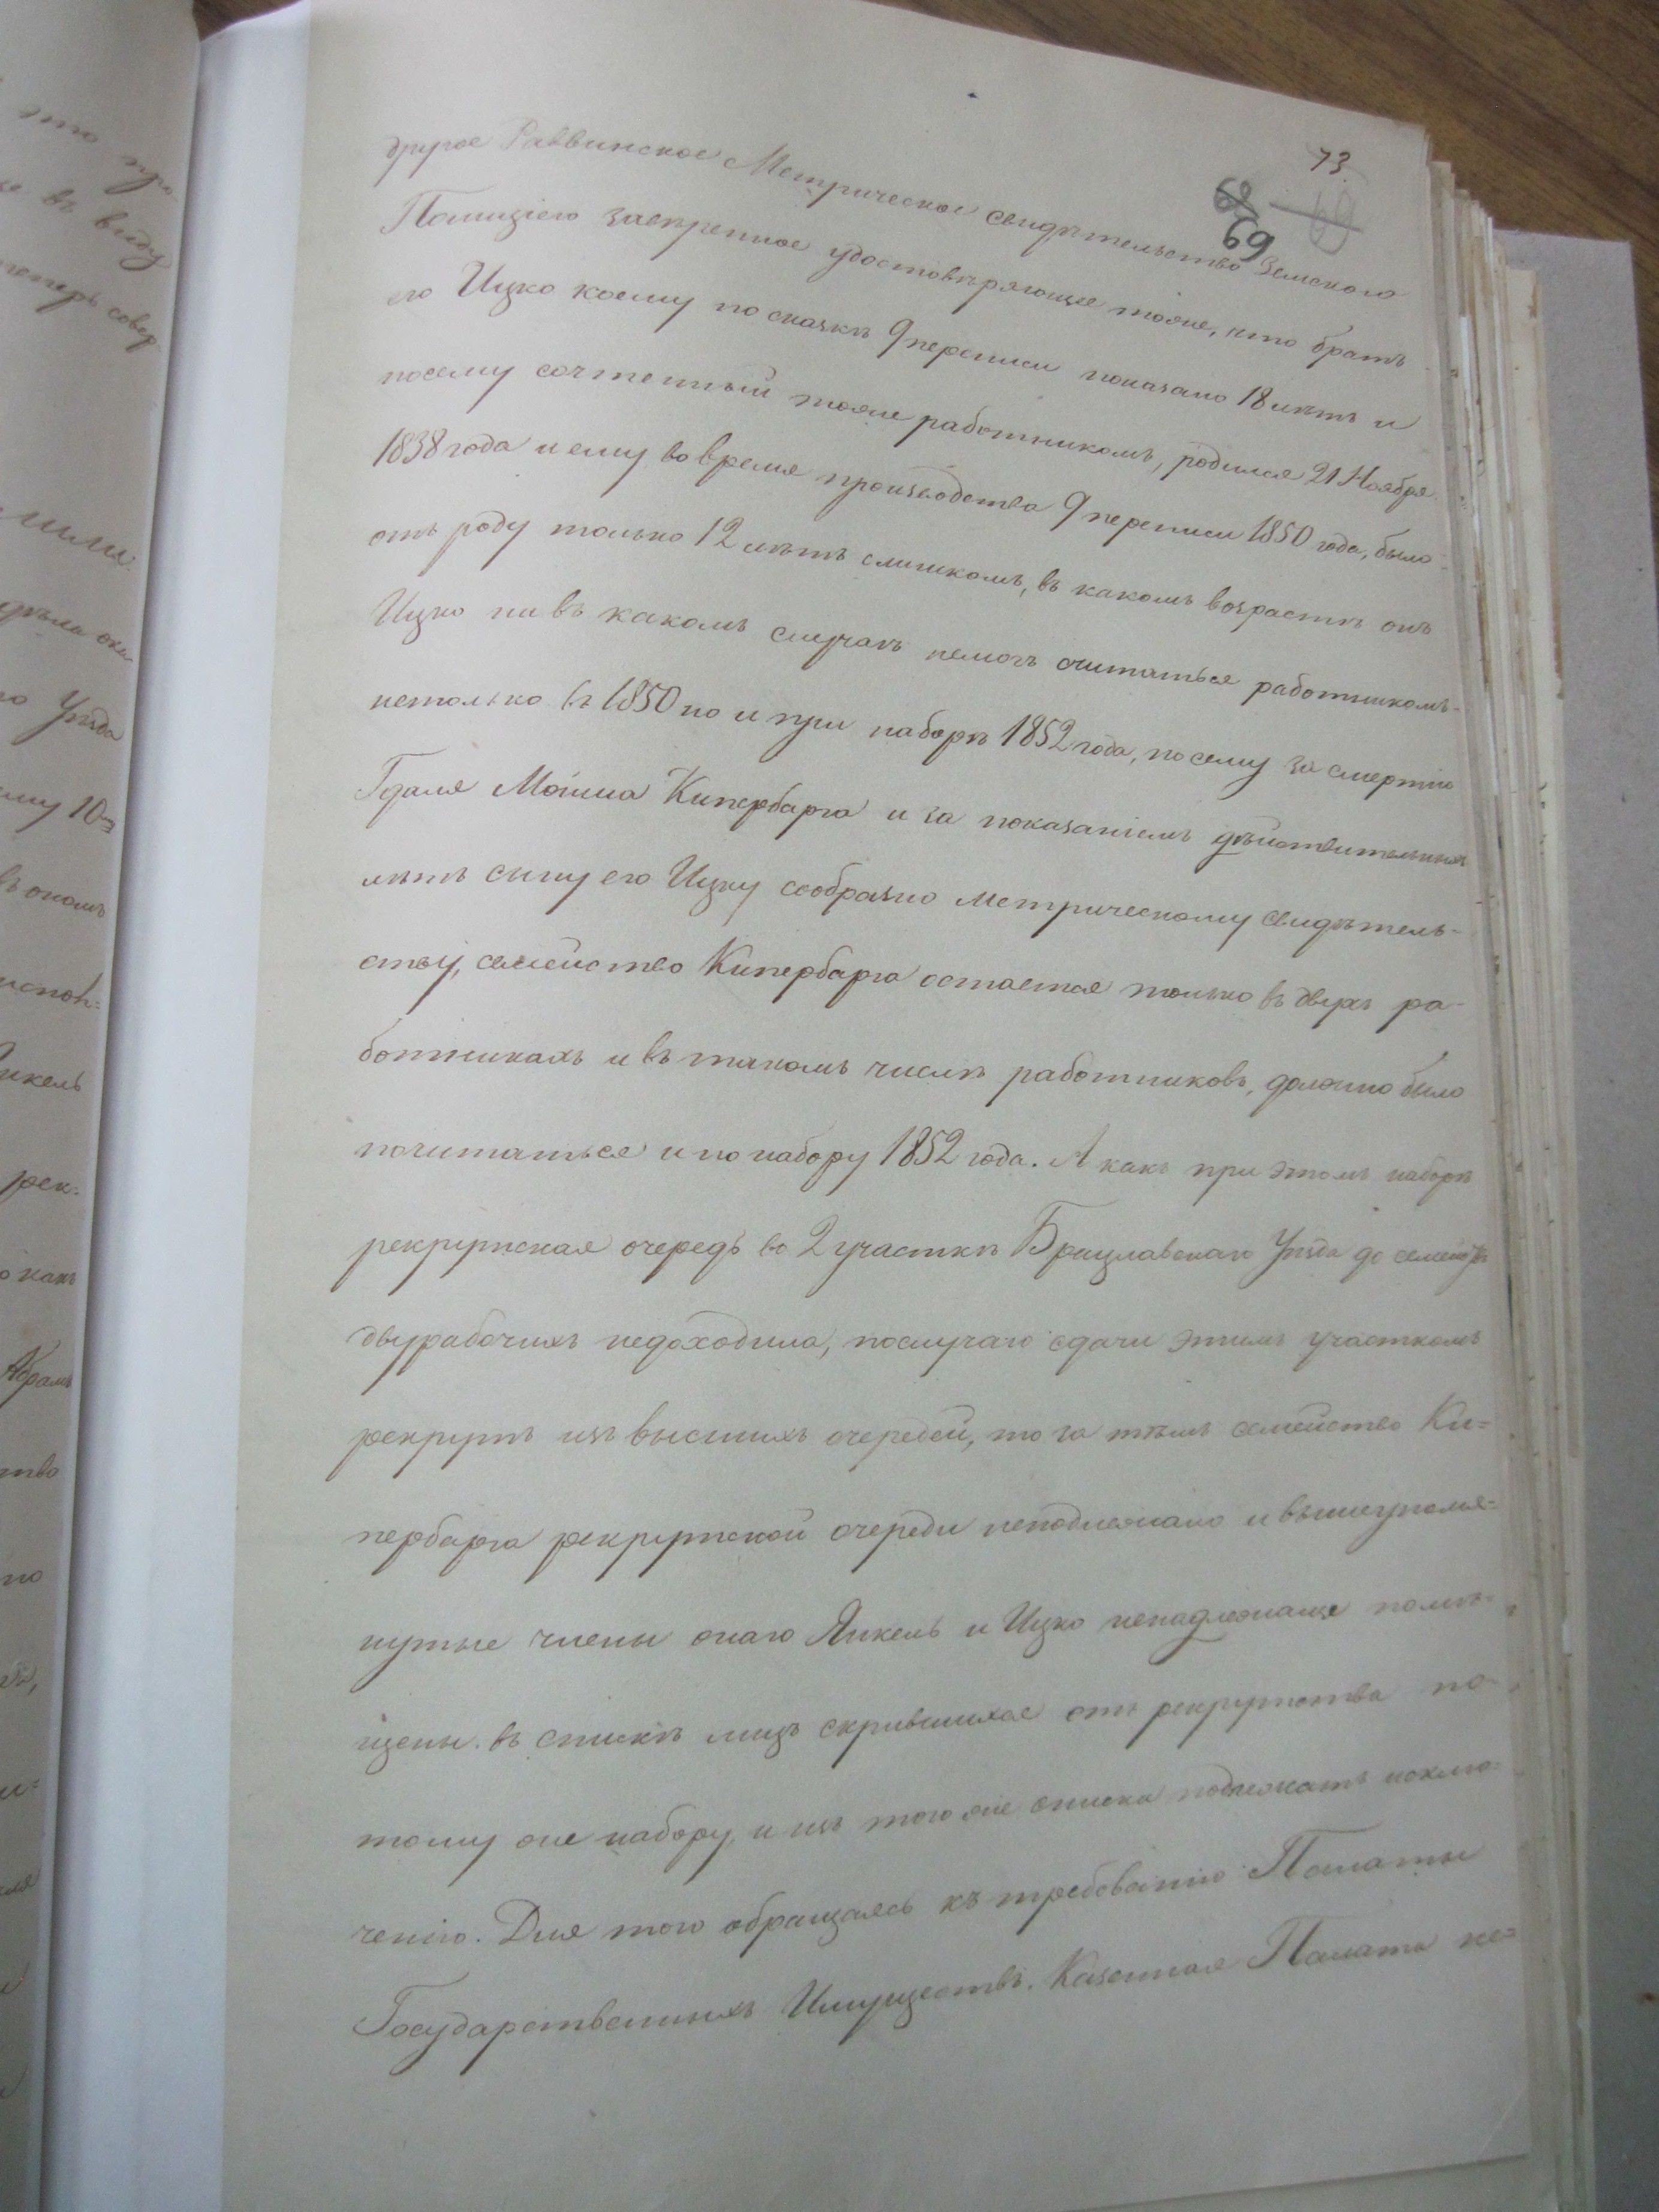 73.
69
69
другое Раввинское Метрическое свидѣтельство Земскою
Полиціею завѣренное удостовѣряющее тоже, что братъ
его Ицко коему по сказкѣ 9 переписи показано 18 лѣтъ и
посему сочтенный тоже работникомъ, родился 21 Ноября
1838 года и ему во время производства 9 переписи 1850 года, было
отъ роду только 12 лѣтъ слишкомъ, въ какомъ возрастѣ онъ
Ицко ни въ какомъ случаѣ немогъ считаться работникомъ
нетолько въ 1850 но и при наборѣ 1852 года, посему за смертію
Гдаля Мошка Кипербарга и за показаніемъ дѣйствительныхъ
лѣтъ сыну его Ицку сообразно метрическому свидѣтель-
ству, семейство Кипербарга остается только въ двухъ ра-
ботникахъ и въ такомъ числѣ работниковъ, должно было
почитаться и по набору 1852 года. А какъ при этомъ наборѣ
рекрутская очередь во 2 участкѣ Брацлавскаго Уѣзда до семействъ
двурабочихъ недоходила, послучаю сдачи этимъ участкомъ
рекрутъ изъ высшихъ очередей, то за тѣмъ семейство Ки=
пербарга рекрутской очереди неподлежало и вышеупомя=
нутые члены онаго Янкель и Ицко ненадлежаще помѣ-
щены въ списки лицъ скрывшихся отъ рекрутства по
тому же набору, и изъ того же списка подлежатъ исклю-
ченію. Для того обращаясь къ требованію Палаты
Государственныхъ Имуществъ. Казенная Палата не=
это про
въ виду
теперь совер
Уѣзда
ему 10-
въ ономъ
испол=
Янкель
рек:
какъ
Абрамъ
ство
по